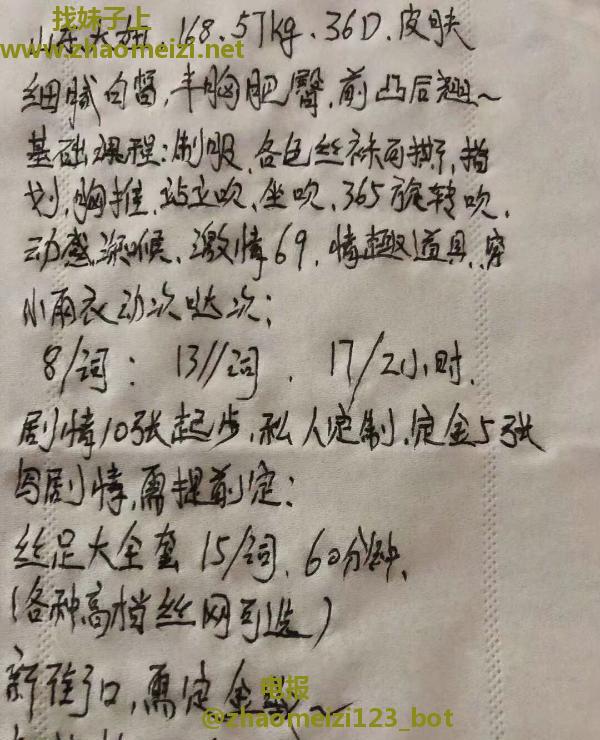 找妹子上
www.zhaomeizi.net
山东大妞、168、57kg、36D、皮肤
细腻白皙，丰胸肥臀，前凸后翘～
基础课程：制服、各色丝袜可撕、指
划、胸推、站立吹、坐吹、365旋转吹、
动感深喉、激情69、情趣道具、穿
小雨衣动次哒次；
8/词： 13//词、 17/2小时、
剧情10张起步、私人定制、定金5张
写剧情，需提前定；
丝足大全套 15/词、60分钟、
（各种高档丝网可选）
新街口，需定金
电报
@zhaomeizi123_bot